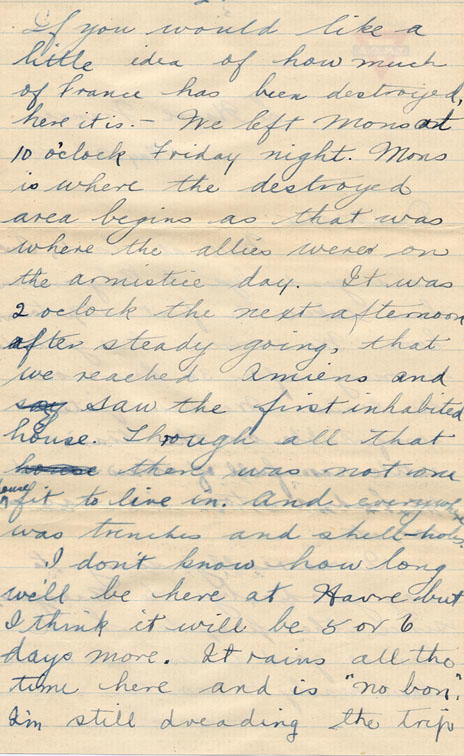 If you would like a
little idea of how much
of France has been destroyed,
here it is. - We left Mons at
10 o'clock Friday night. Mons
is where the destroyed
area begins as that was
where the allies were on
the armistice day. It was
2 oclock the next afternoon
after steady going, that
we reached Amiens and
say saw the first inhabited
house. Through all that
house there was not one
house fit to live in. And everywhere
was trenches and shell-holes.
I don't know how long
we'll be here at Havre but
I think it will be 5 or 6
days more. It rains all the
time here and is "no bon".
I'm still dreading the trip